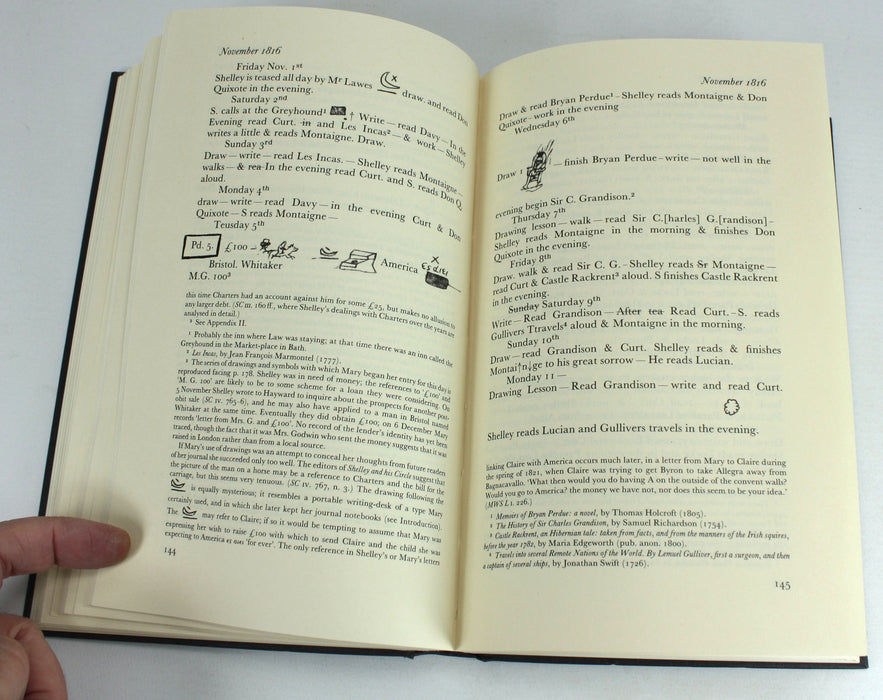 November 1816
Friday Nov. 1st
Shelley is teased all day by Mr Lawes draw. and read Don
Quixote in the evening.
Saturday 2nd
S. calls at the Greyhound¹ † Write — read Davy — In the
Evening read Curt. in and Les Incas² — & work — Shelley
writes a little & reads Montaigne. Draw.
Sunday 3rd
Draw — write — read Les Incas. — Shelley reads Montaigne —
walks — & rea In the evening read Curt. and S. reads Don Q.
aloud.
Monday 4th
draw — write — read Davy — in the evening Curt & Don
Quixote — S reads Montaigne —
Teusday 5th
Pd. 5. £100 – America
Bristol. Whitaker
M.G. 100³
this time Charters had an account against him for some £25, but makes no allusion to
any larger debt. (SC III. 160ff., where Shelley's dealings with Charters over the years are
analysed in detail.)
² See Appendix II.
¹ Probably the inn where Law was staying; at that time there was an inn called the
Greyhound in the Market-place in Bath.
² Les Incas, by Jean François Marmontel (1777).
³ The series of drawings and symbols with which Mary began her entry for this day is
reproduced facing p. 178. Shelley was in need of money; the references to '£100' and
'M. G. 100' are likely to be to some scheme for a loan they were considering. On
5 November Shelley wrote to Hayward to inquire about the prospects for another post-
obit sale (SC IV. 765–6), and he may also have applied to a man in Bristol named
Whitaker at the same time. Eventually they did obtain £100; on 6 December Mary
records 'letter from Mrs. G. and £100'. No record of the lender's identity has yet been
traced, though the fact that it was Mrs. Godwin who sent the money suggests that it was
raised in London rather than from a local source.
If Mary's use of drawings was an attempt to conceal her thoughts from future readers
of her journal she succeeded only too well. The editors of Shelley and his Circle suggest that
the picture of the man on a horse may be a reference to Charters and the bill for the
carriage, but this seems very tenuous. (SC IV. 767, n. 3.) The drawing following the
is equally mysterious; it resembles a portable writing-desk of a type Mary
certainly used, and in which she later kept her journal notebooks (see Introduction).
The may refer to Claire; if so it would be tempting to assume that Mary was
expressing her wish to raise £100 with which to send Claire and the child she was
expecting to America es aiei 'for ever'. The only reference in Shelley's or Mary's letters
144
November 1816
Draw & read Bryan Perdue¹ – Shelley reads Montaigne & Don
Quixote – work in the evening
Wednesday 6th
Draw 1 — finish Bryan Perdue – write — not well in the
evening begin Sir C. Grandison.²
Thursday 7th
Drawing lesson — walk — read Sir C.[harles] G.[randison] –
Shelley reads Montaigne in the morning & finishes Don
Quixote in the evening.
Friday 8th
Draw. walk & read Sir C. G. – Shelley reads Sr Montaigne —
read Curt & Castle Rackrent³ aloud. S finishes Castle Rackrent
in the evening.
Sunday Saturday 9th
Write — Read Grandison — After tea Read Curt. – S. reads
Gullivers Ttravels⁴ aloud & Montaigne in the morning.
Sunday 10th
Draw — read Grandison & Curt. Shelley reads & finishes
Montai†n¡ge to his great sorrow — He reads Lucian.
Monday 11 —
Drawing Lesson — Read Grandison — write and read Curt.
Shelley reads Lucian and Gullivers travels in the evening.
linking Claire with America occurs much later, in a letter from Mary to Claire during
the spring of 1821, when Claire was trying to get Byron to take Allegra away from
Bagnacavallo. 'What then would you do having A on the outside of the convent walls?
Would you go to America? the money we have not, nor does this seem to be your idea.'
(MWS L I. 226.)
¹ Memoirs of Bryan Perdue: a novel, by Thomas Holcroft (1805).
² The History of Sir Charles Grandison, by Samuel Richardson (1754).
³ Castle Rackrent, an Hibernian tale: taken from facts, and from the manners of the Irish squires,
before the year 1782, by Maria Edgeworth (pub. anon. 1800).
⁴ Travels into several Remote Nations of the World. By Lemuel Gulliver, first a surgeon, and then
a captain of several ships, by Jonathan Swift (1726).
145